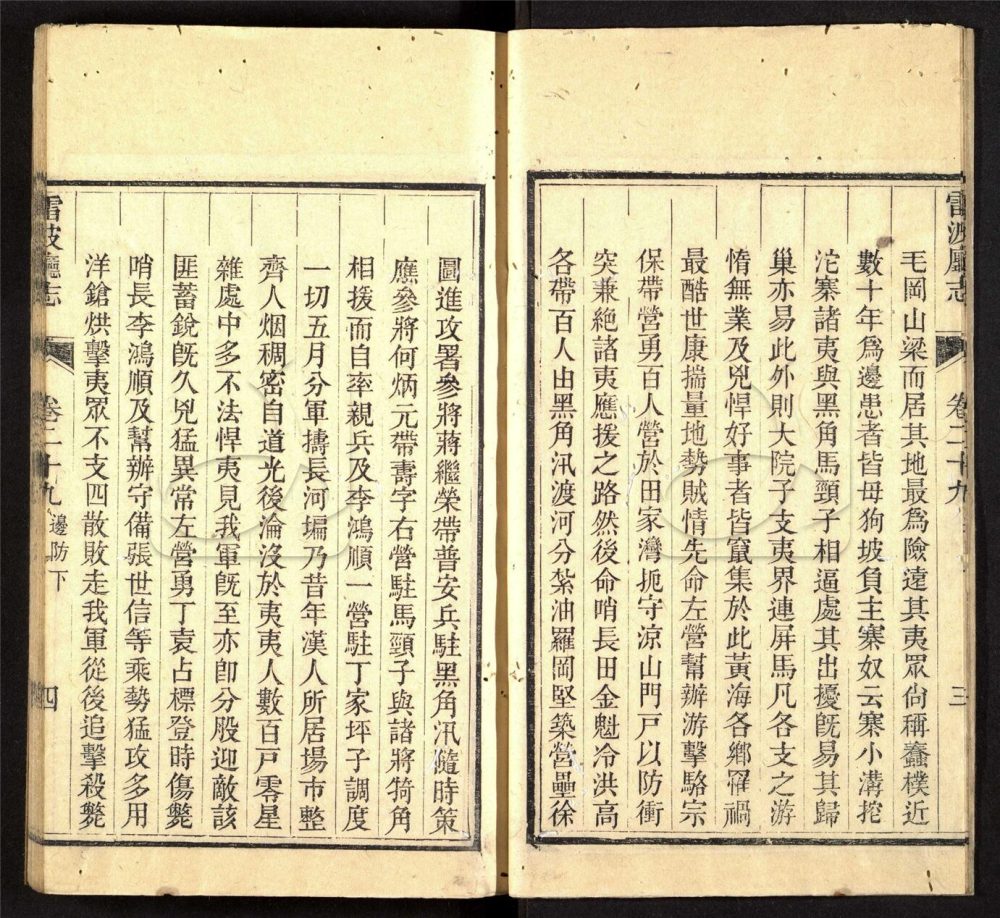 雷波廳志
卷二十九
三
毛岡山梁而居其地最爲險遠其夷眾尙稱蠢樸近
數十年爲邊患者皆毋狗坡負主寨奴云寨小溝挖
沱寨諸夷與黑角馬頸子相逼處其出擾旣易其歸
巢亦易此外則大院子支夷界連屏馬凡各支之游
惰無業及兇悍好事者皆竄集於此黃海各鄕罹禍
最酷世康揣量地勢賊情先命左營幫辦游擊駱宗
保帶營勇百人營於田家灣扼守涼山門戶以防衝
突兼絶諸夷應援之路然後命哨長田金魁冷洪高
各帶百人由黑角汛渡河分紮油羅岡堅築營壘徐
圖進攻署參將蔣繼榮帶普安兵駐黑角汛隨時策
應參將何炳元帶壽字右營駐馬頸子與諸將犄角
相援而自率親兵及李鴻順一營駐丁家坪子調度
一切五月分軍擣長河塥乃昔年漢人所居場市整
齊人烟稠密自道光後淪沒於夷夷人數百戶零星
雜處中多不法悍夷見我軍旣至亦卽分股迎敵該
匪蓄銳旣久兇猛異常左營勇丁袁占標登時傷斃
哨長李鴻順及幫辦守備張世信等乘勢猛攻多用
洋鎗烘擊夷眾不支四散敗走我軍從後追擊殺斃
雷波廳志
卷二十九
邊防下
四